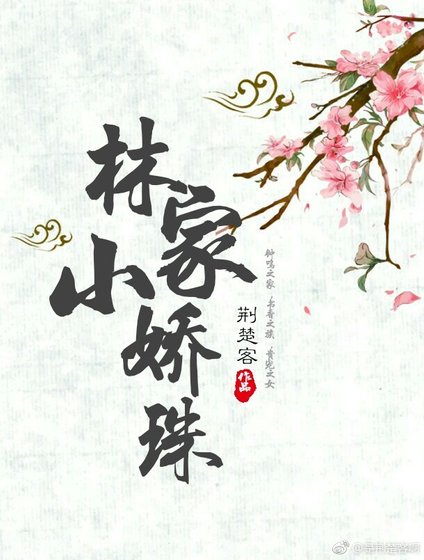 林家小娇珠
荆楚客
作品
钟鸣之家 书香之族 之女